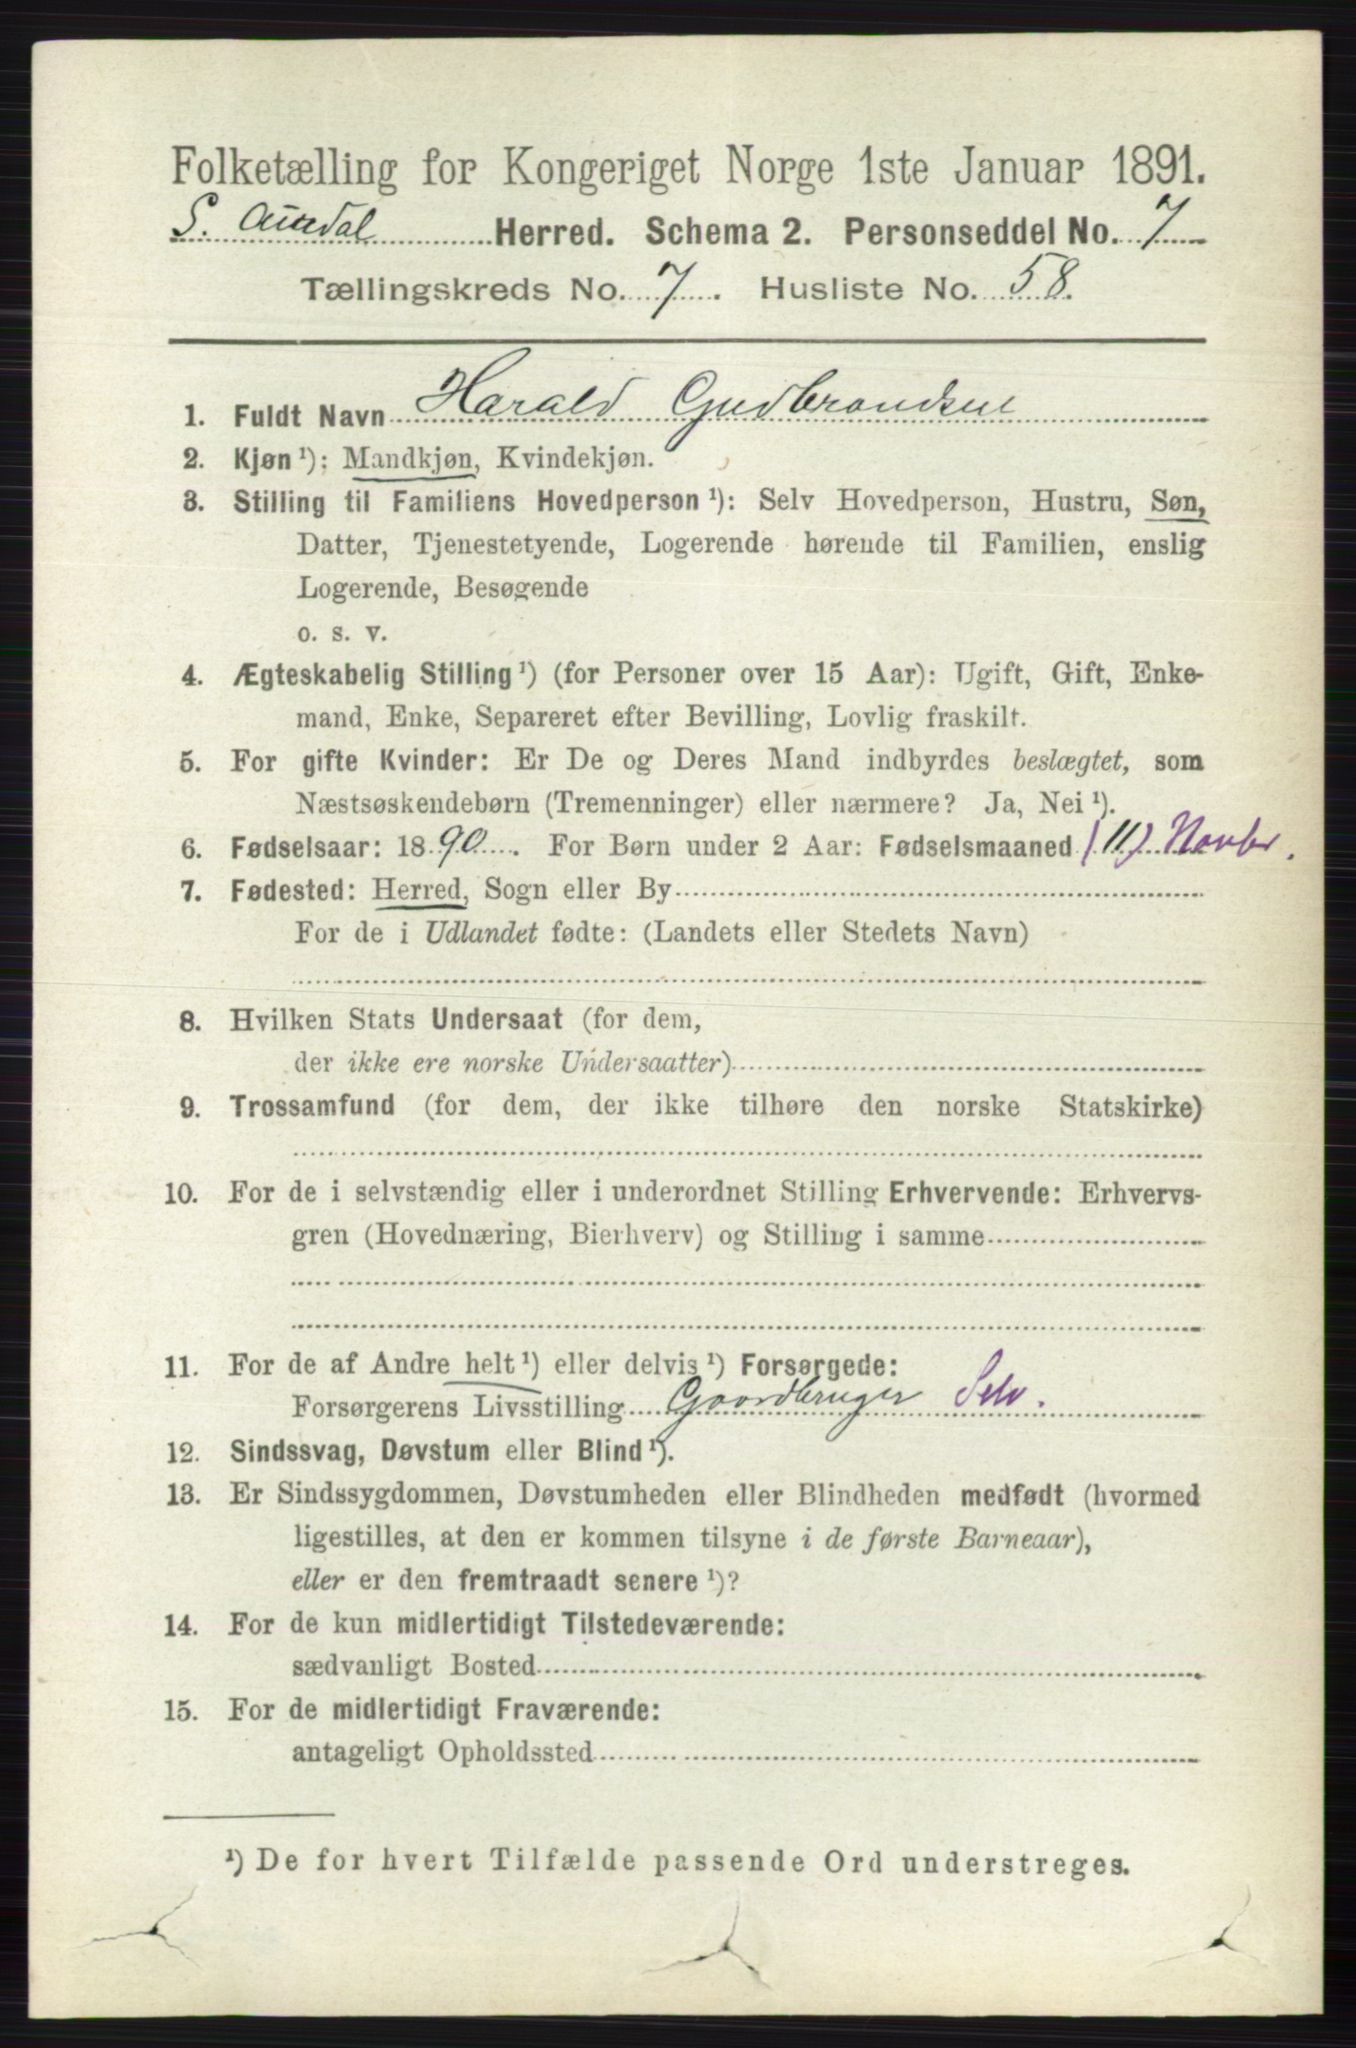 Folketælling for Kongeriget Norge 1ste Januar 1891.
S. Aurdal Herred. Schema 2. Personseddel No. 7
Tællingskreds No. 7. Husliste No. 58.
1. Fuldt Navn Harald Gudbrandsen
2. Kjøn ¹): Mandkjøn, Kvindekjøn.
3. Stilling til Familiens Hovedperson ¹): Selv Hovedperson, Hustru, Søn,
Datter, Tjenestetyende, Logerende hørende til Familien, enslig
Logerende, Besøgende
o. s. v.
4. Ægteskabelig Stilling ¹) (for Personer over 15 Aar): Ugift, Gift, Enke-
mand, Enke, Separeret efter Bevilling, Lovlig fraskilt.
5. For gifte Kvinder: Er De og Deres Mand indbyrdes beslægtet, som
Næstsøskendebørn (Tremenninger) eller nærmere? Ja, Nei ¹).
6. Fødselsaar: 1890. For Børn under 2 Aar: Fødselsmaaned (11) Novbr.
7. Fødested: Herred, Sogn eller By
For de i Udlandet fødte: (Landets eller Stedets Navn)
8. Hvilken Stats Undersaat (for dem,
der ikke ere norske Undersaatter)
9. Trossamfund (for dem, der ikke tilhøre den norske Statskirke)
10. For de i selvstændig eller i underordnet Stilling Erhvervende: Erhvervs-
gren (Hovednæring, Bierhverv) og Stilling i samme
11. For de af Andre helt ¹) eller delvis ¹) Forsørgede:
Forsørgerens Livsstilling Gaardbruger Selv.
12. Sindssvag, Døvstum eller Blind ¹).
13. Er Sindssygdommen, Døvstumheden eller Blindheden medfødt (hvormed
ligestilles, at den er kommen tilsyne i de første Barneaar),
eller er den fremtraadt senere ¹)?
14. For de kun midlertidigt Tilstedeværende:
sædvanligt Bosted
15. For de midlertidigt Fraværende:
antageligt Opholdssted
¹) De for hvert Tilfælde passende Ord understreges.